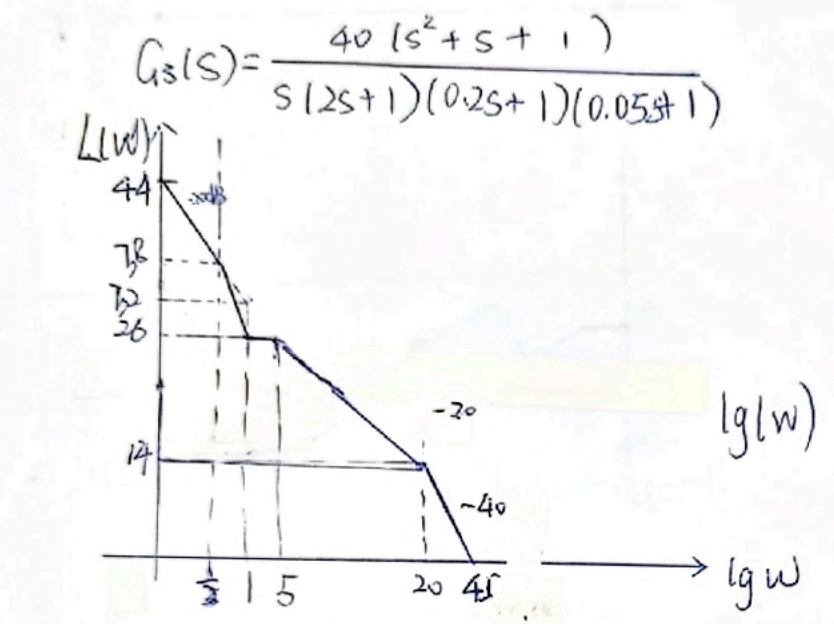 G₃(s)= 40(s²+s+1) / s(2s+1)(0.2s+1)(0.05s+1)
L(w)
44
38
32
26
-20
lg(w)
14
-40
1/2 1 5 20 45
lgw